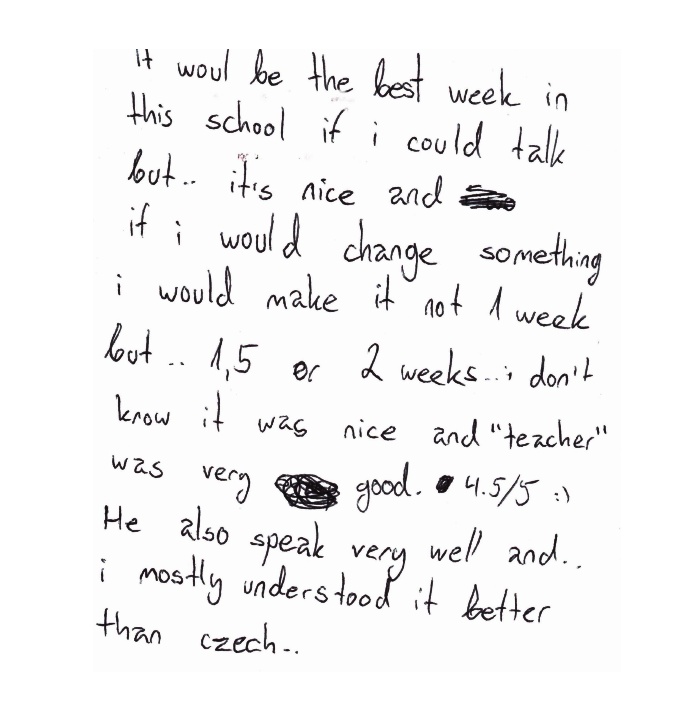 It woul be the best week in
this school if i could talk
but.. it's nice and
if i would change something
i would make it not 1 week
but .. 1,5 or 2 weeks... i don't
know it was nice and "teacher"
was very good. 4.5/5 :)
He also speak very well and..
i mostly understood it better
than czech..